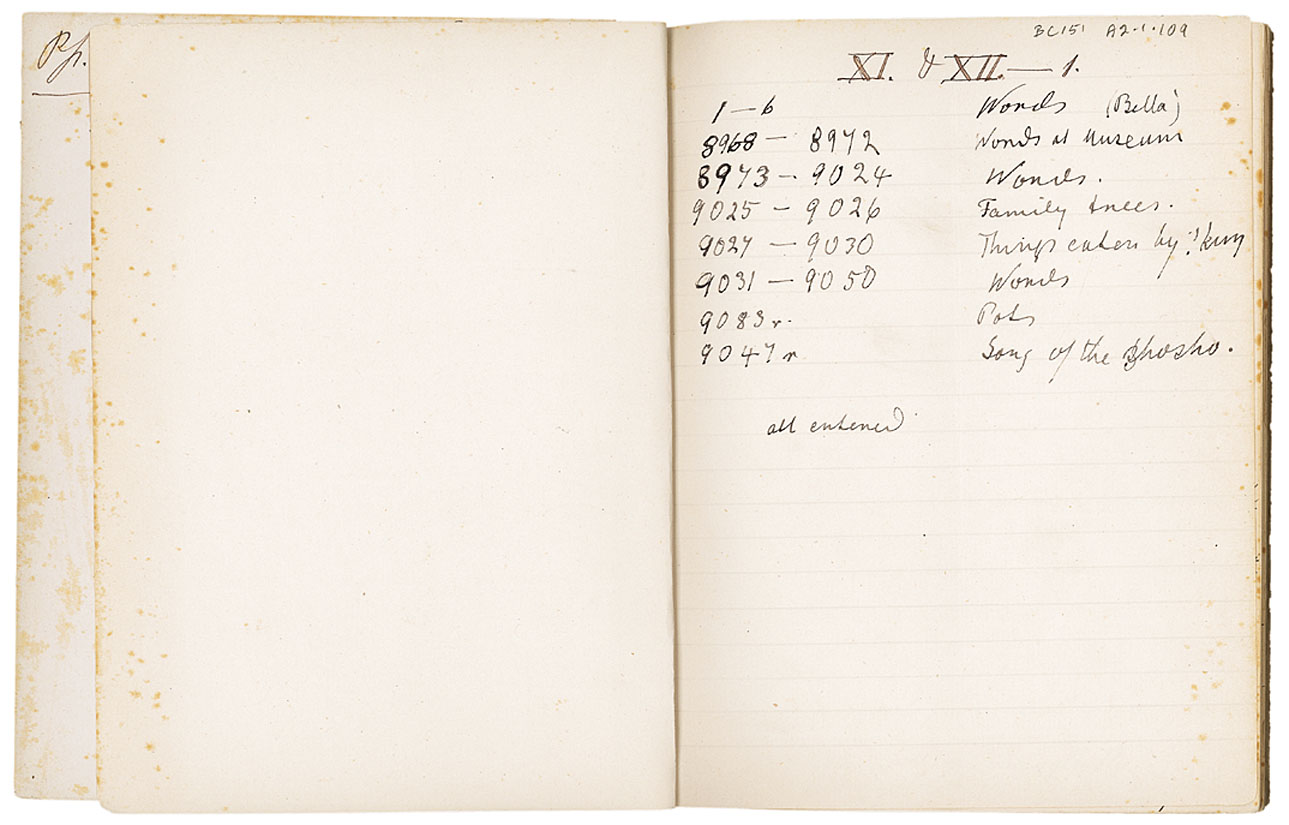 Pp.
BC151 A2.1.109
XI. & XII.—1.
1—6 Words (Bella)
8968— 8972 Words at Museum
8973— 9024 Words.
9025 — 9026 Family trees.
9027 — 9030 Things eaten by !kung
9031 — 9050 Words
9083 r. Pots
9047 r Song of the
all entered